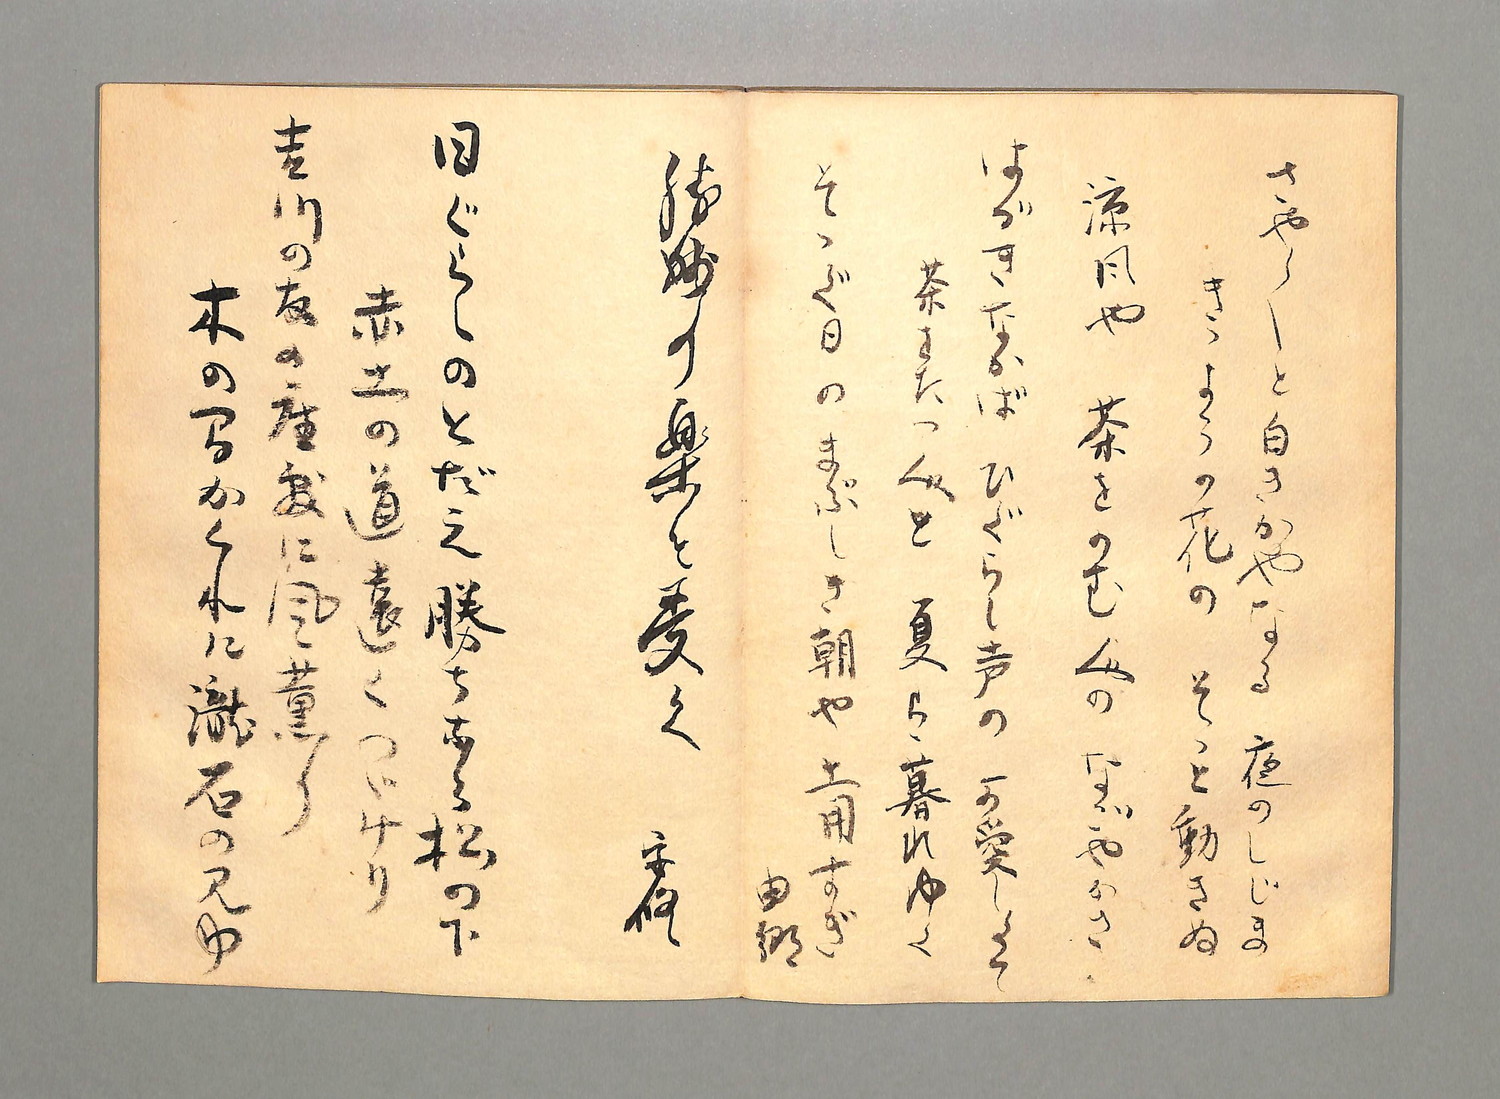 さやらしと白きかやなる 夜のしじま
きょうの花の そっと動きぬ
涼風や 茶をのむ人の
はがきなかば ひぐらし声の 可愛しくて
茶をたつ人と 夏らゝ暮れゆく
そゝぐ日の まぶしき朝や 土用すぎ
由郷
勝妙の楽を受く
日ぐらしのとだえ勝ちなる松の下
赤土の道遠くつゞけり
吉川の友の座敷に風薫り
木の間かくれに瀧石の見ゆ